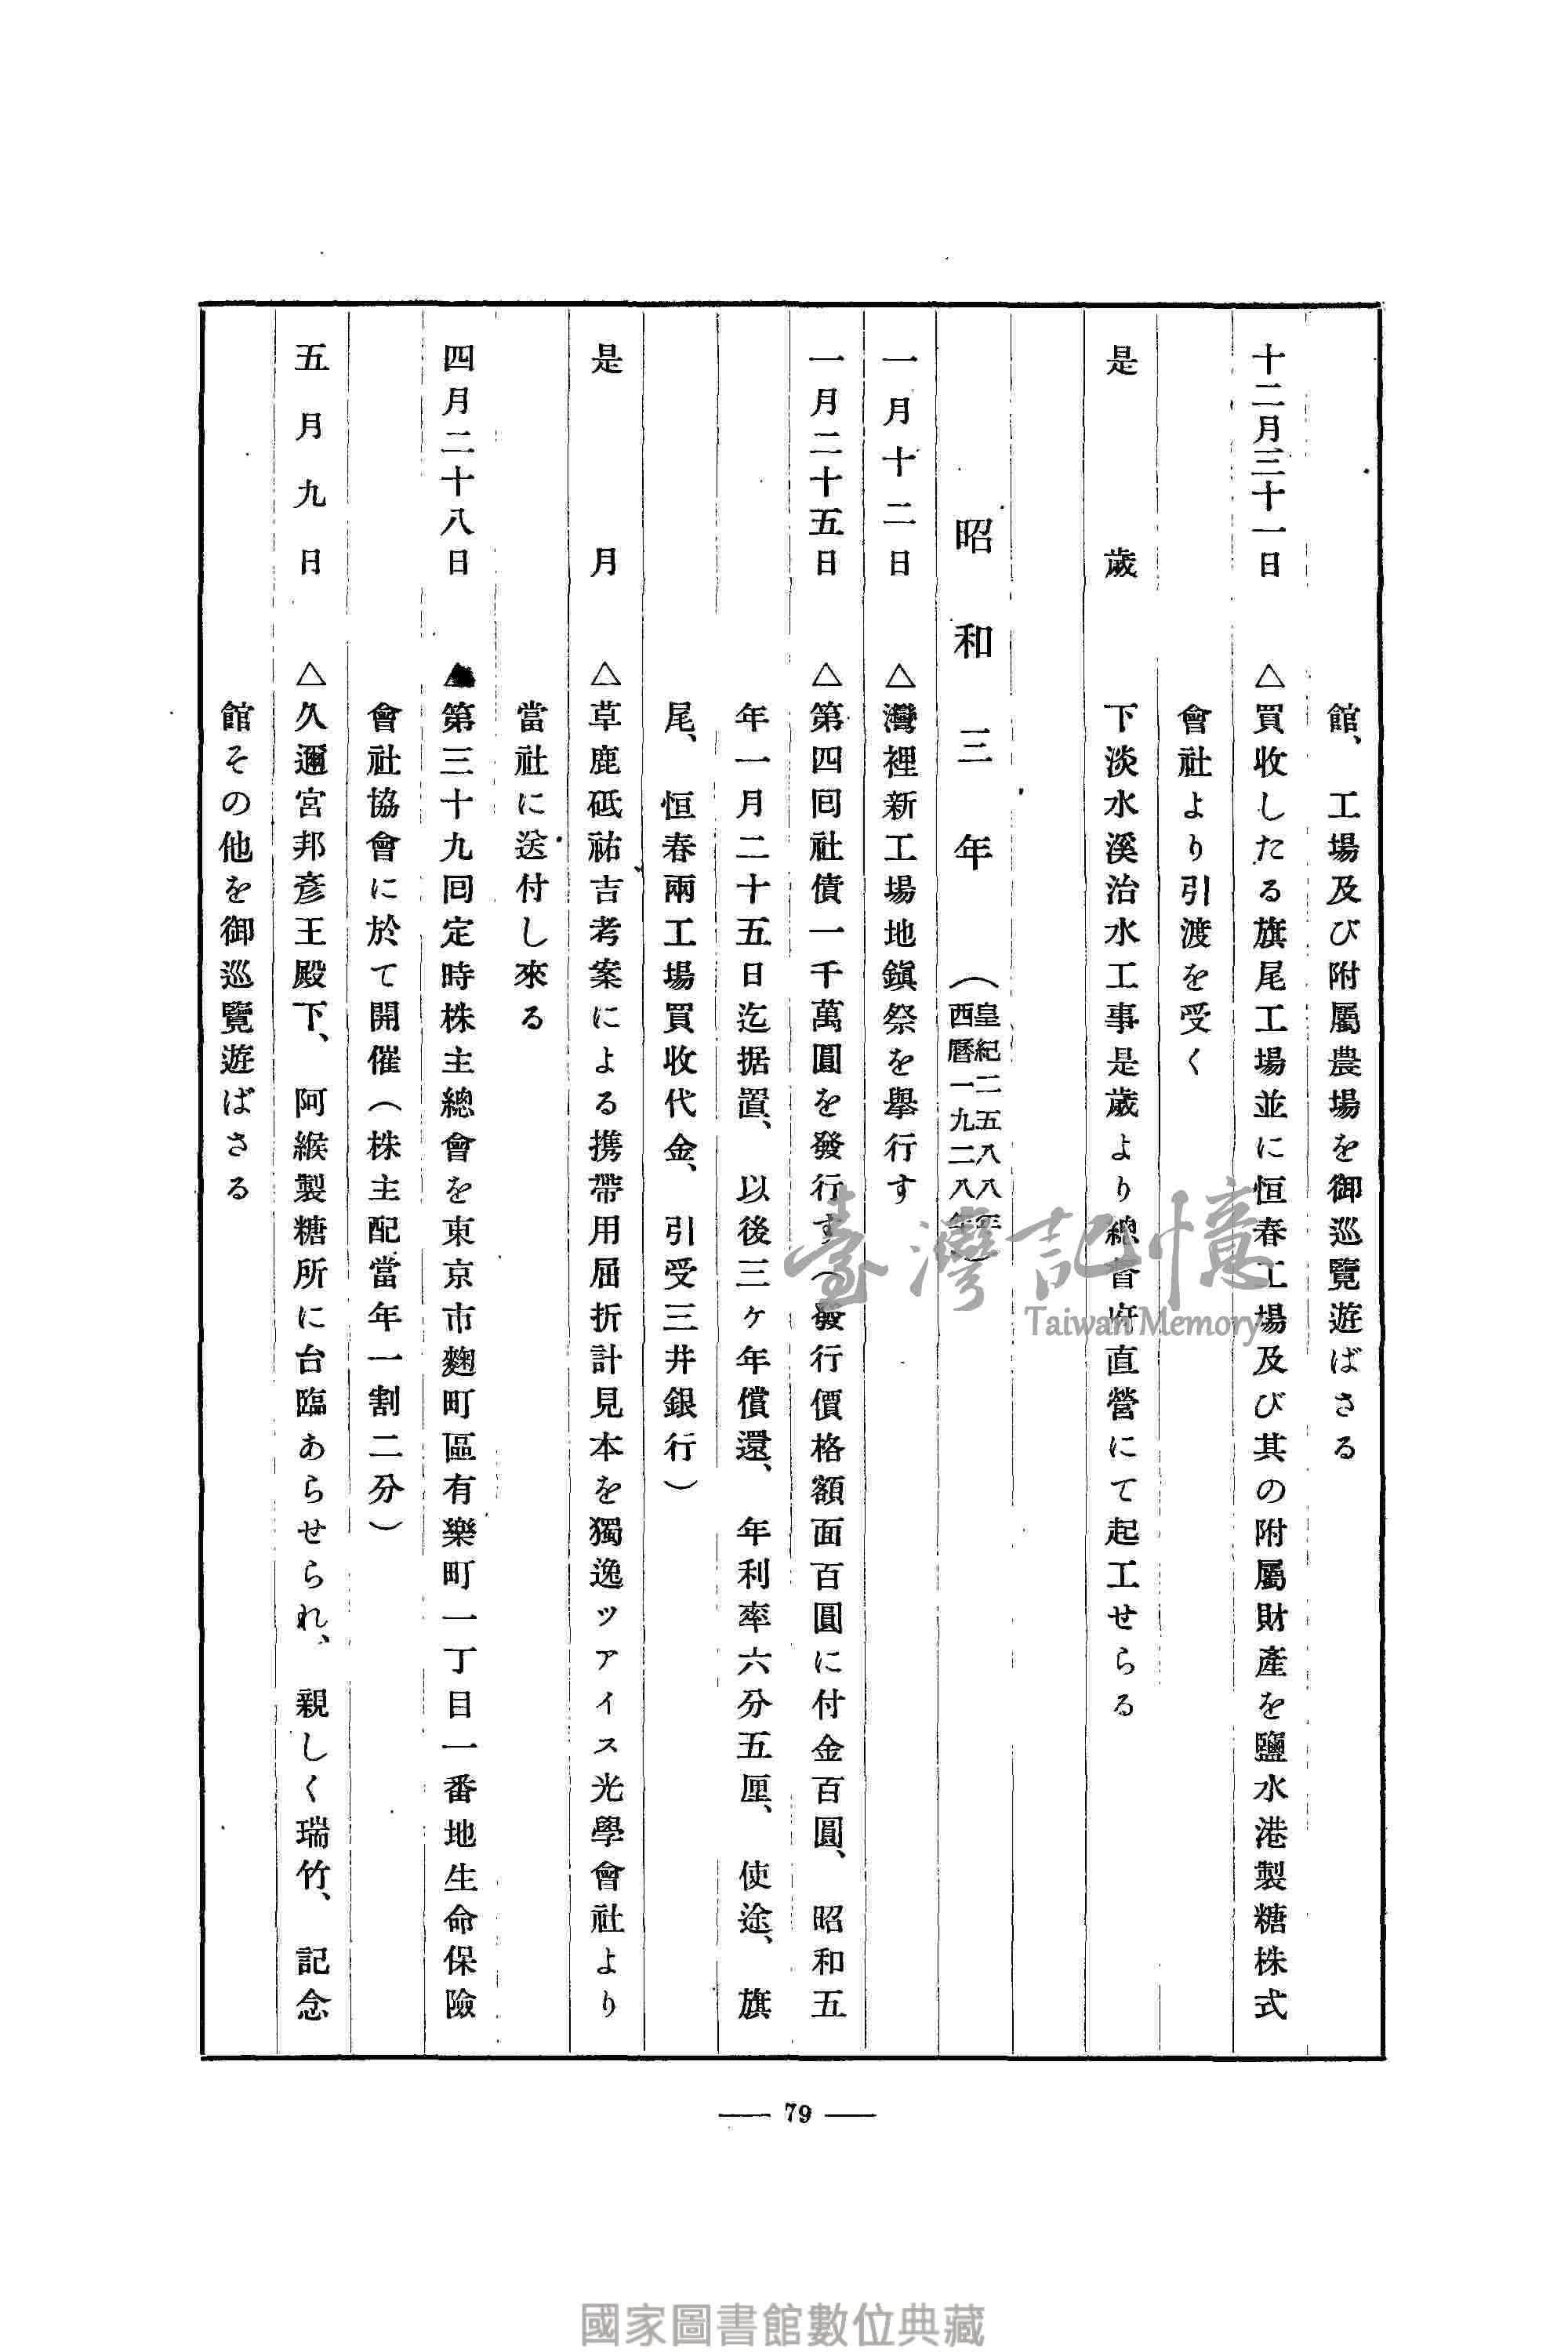 館、工場及び附屬農場を御巡覽遊ばさる
十二月三十一日 △買收したる旗尾工場並に恒春工場及び其の附屬財產を鹽水港製糖株式
會社より引渡を受く
是歲 下淡水溪治水工事是歲より總督府直營にて起工せらる
昭和三年 (皇紀二五八八年
西曆一九二八年)
一月十二日 △灣裡新工場地鎭祭を擧行す
一月二十五日 △第四回社債一千萬圓を發行す(發行價格額面百圓に付金百圓、昭和五
年一月二十五日迄据置、以後三ヶ年償還、年利率六分五厘、使途、旗
尾、恒春兩工場買收代金、引受三井銀行)
是月 △草鹿砥祐吉考案による携帶用屈折計見本を獨逸ツアイス光學會社より
當社に送付し來る
四月二十八日 △第三十九回定時株主總會を東京市麴町區有樂町一丁目一番地生命保險
會社協會に於て開催(株主配當年一割二分)
五月九日 △久邇宮邦彥王殿下、阿緱製糖所に台臨あらせられ、親しく瑞竹、記念
館その他を御巡覽遊ばさる
— 79 —
臺灣記憶
Taiwan Memory
國家圖書館數位典藏